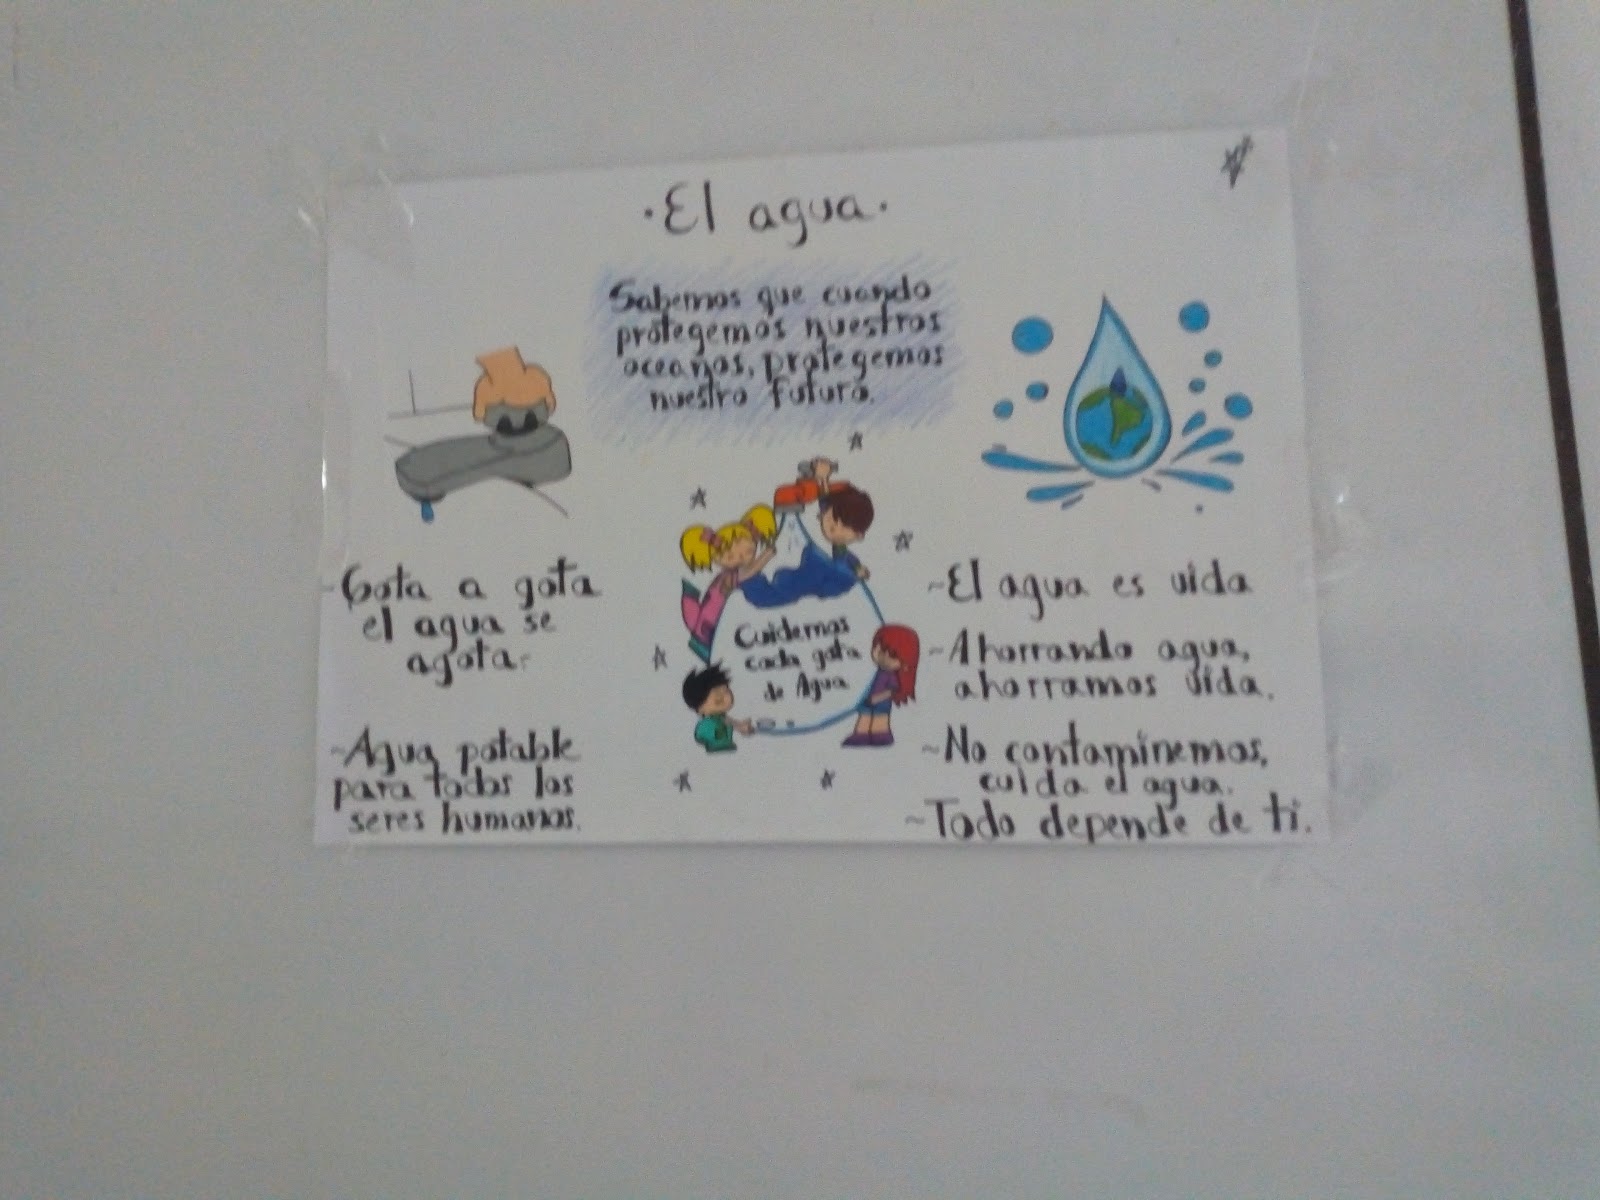 ·El agua·
Sabemos que cuando
protegemos nuestros
oceanos, protegemos
nuestro futuro.
-Gota a gota
el agua se
agota.
~Agua potable
para todos los
seres humanos.
Cuidemos
cada gota
de Agua
~El agua es vida
~Ahorrando agua,
ahorramos vida.
~No contaminemos,
cuida el agua.
~Todo depende de ti.